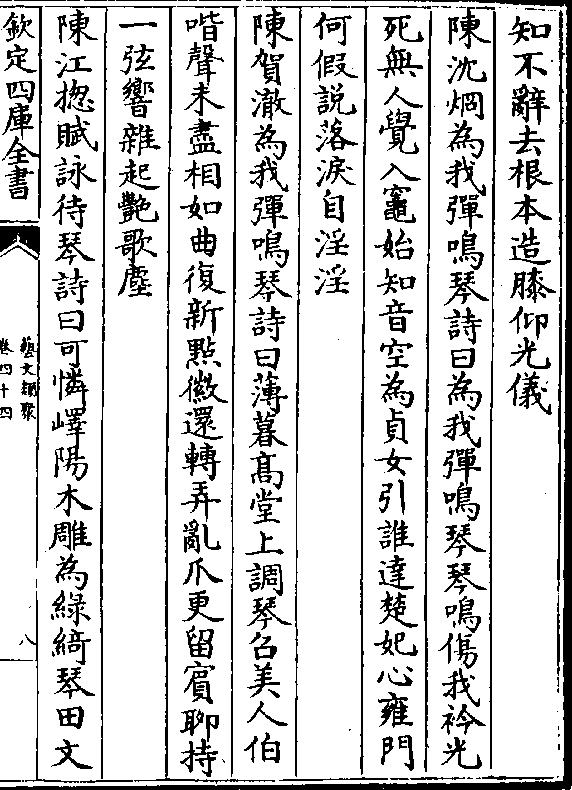 知不辭去根本造膝仰光儀
陳沈烱為我彈鳴琴詩曰為我彈鳴琴琴鳴傷我衿光
死無人覺入竈始知音空為貞女引誰達楚妃心雍門
何假說落淚自淫淫
陳賀澈為我彈鳴琴詩曰薄暮髙堂上調琴召美人伯
喈聲未盡相如曲復新㸃徽還轉弄亂爪更留賓聊持
一弦響雜起艷歌塵
陳江揔賦詠待琴詩曰可憐嶧陽木雕為綠綺琴田文
欽定四庫全書
藝文類聚
卷四十四
八